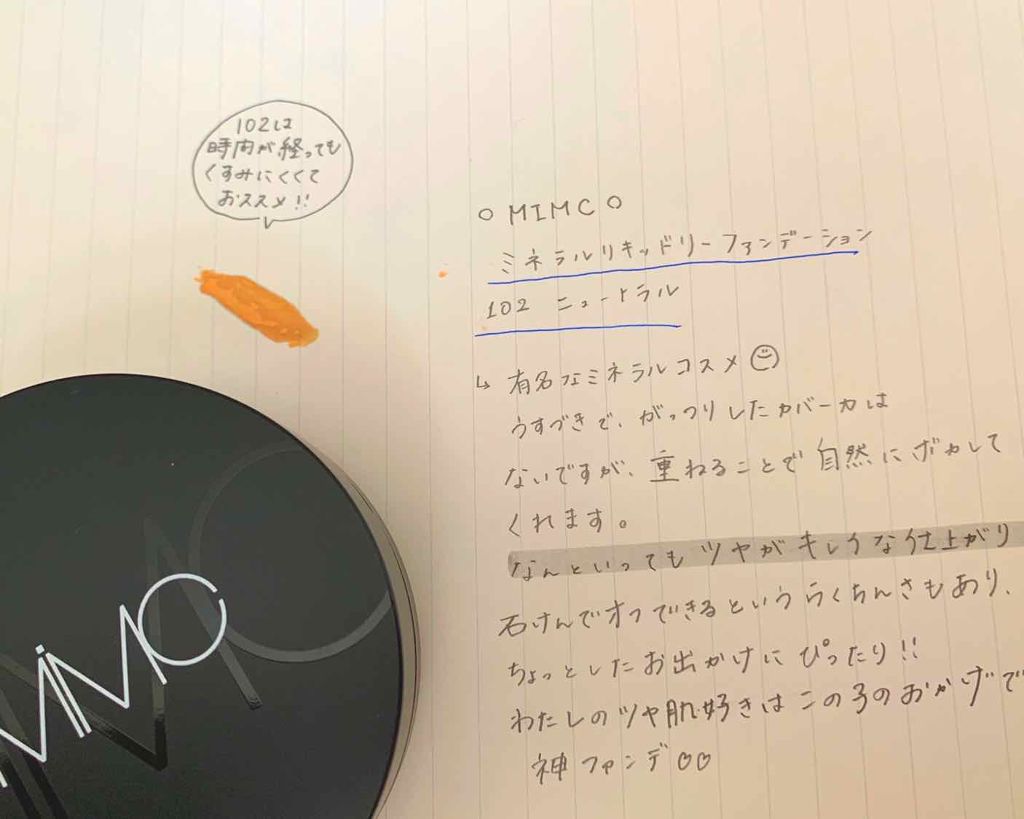 102は
時間が経っても
くすみにくくて
おススメ!!
○ MIMC ○
ミネラルリキッドリーファンデーション
102 ニュートラル
↳ 有名なミネラルコスメ☺
うすづきで、がっつりしたカバー力は
ないですが、重ねることで自然にボカして
くれます。
なんといってもツヤがキレイな仕上がり
石けんでオフできるというらくちんさもあり、
ちょっとしたお出かけにぴったり!!
わたしのツヤ肌好きはこの子のおかげで
神ファンデ♡♡
MIMC